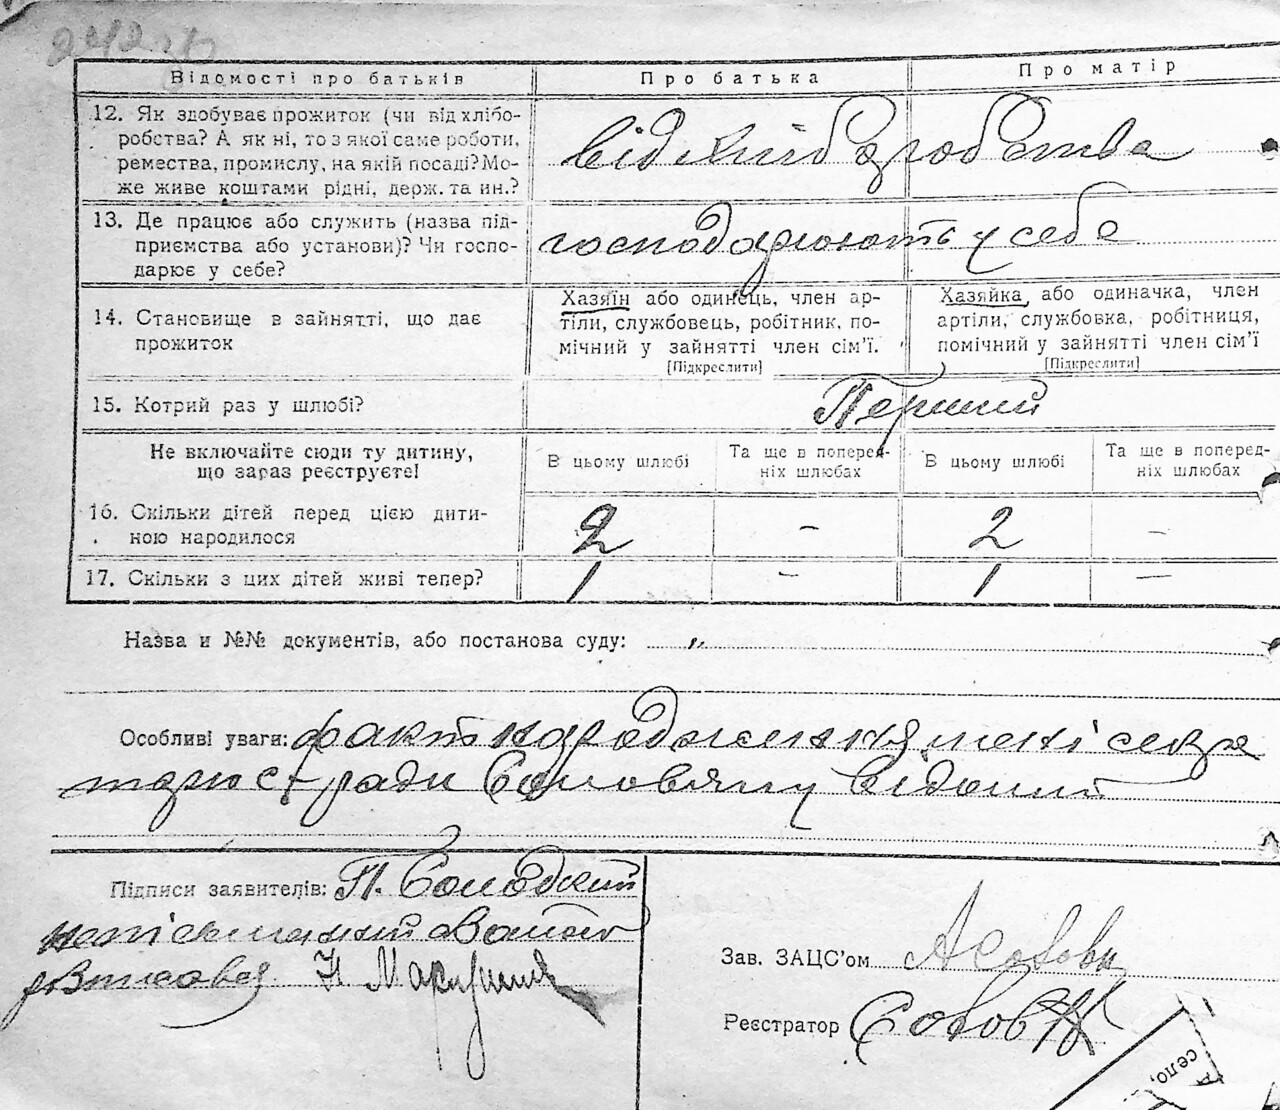 242 зв
Відомості про батьків
Про батька
Про матір
12. Як здобуває прожиток (чи від хлібо-
робства? А як ні, то з якої саме роботи,
ремества, промислу, на якій посаді? Мо-
же живе коштами рідні, держ. та ин.?
від хліборобства
13. Де працює або служить (назва під-
приємства або установи)? Чи госпо-
дарює у себе?
господарюють у себе
14. Становище в зайнятті, що дає
прожиток
Хазяїн або одинець, член ар-
тіли, службовець, робітник, по-
мічний у зайнятті член сім'ї.
[Підкреслити]
Хазяйка або одиначка, член
артіли, службовка, робітниця,
помічний у зайнятті член сім'ї
[Підкреслити]
15. Котрий раз у шлюбі?
Перший
Не включайте сюди ту дитину,
що зараз реєструєте!
В цьому шлюбі
Та ще в поперед-
ніх шлюбах
В цьому шлюбі
Та ще в поперед-
ніх шлюбах
16. Скільки дітей перед цією дити-
ною народилося
2 - 2 -
17. Скільки з цих дітей живі тепер?
1 - 1 -
Назва и №№ документів, або постанова суду: "
Особливі уваги: факт народження мені секре
тарю с/ради Соловяну відомий
Підписи заявителів: П. Солодкий
неписьменний
росписався
Зав. ЗАЦС'ом
Реєстратор
село,